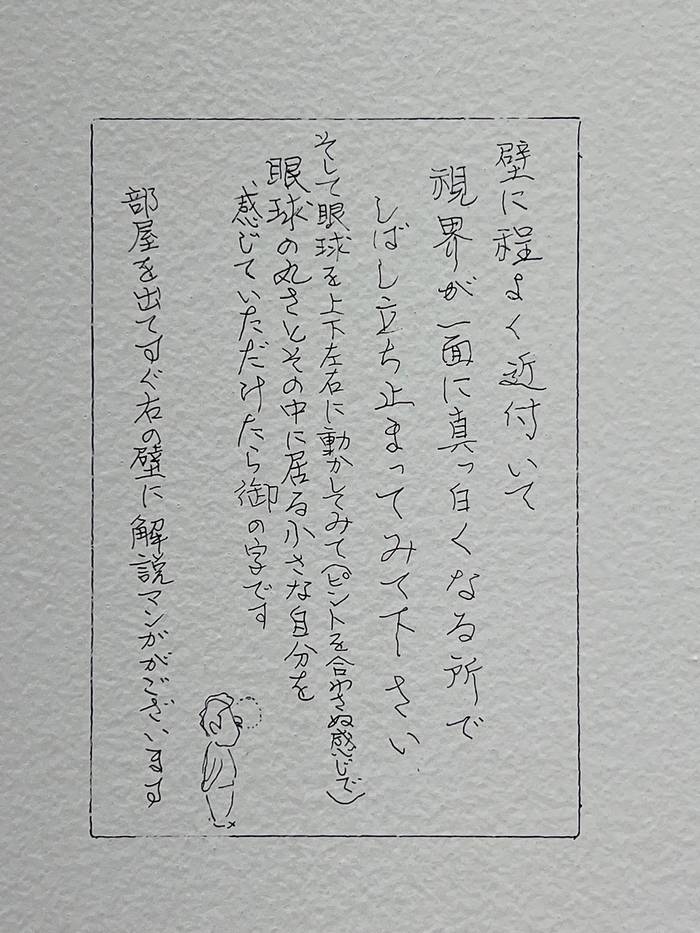 壁に程よく近付いて
視界が一面に真っ白くなる所で
しばし立ち止まってみて下さい
そして眼球を上下左右に動かしてみて(ピントを合わさぬ感じで)
眼球の丸さとその中に居る小さな自分を
感じていただけたら御の字です
部屋を出てすぐ右の壁に解説マンガがございます